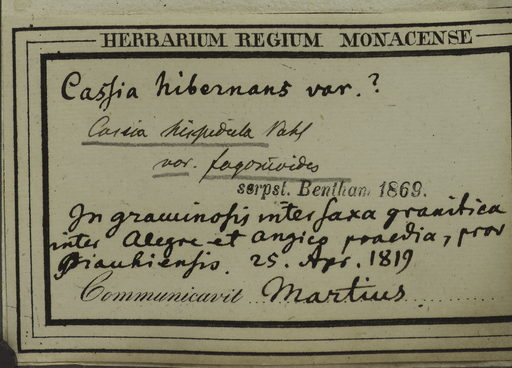 HERBARIUM REGIUM MONACENSE
Cassia hibernans var. ?
Cassia hispidula Vahl
var. fagonioides
scrpst. Bentham 1869.
In graminosis inter saxa granitica
inter Alegre et Angico praedia, prov
Piauhiensis. 25. Apr. 1819
Communicavit Martius